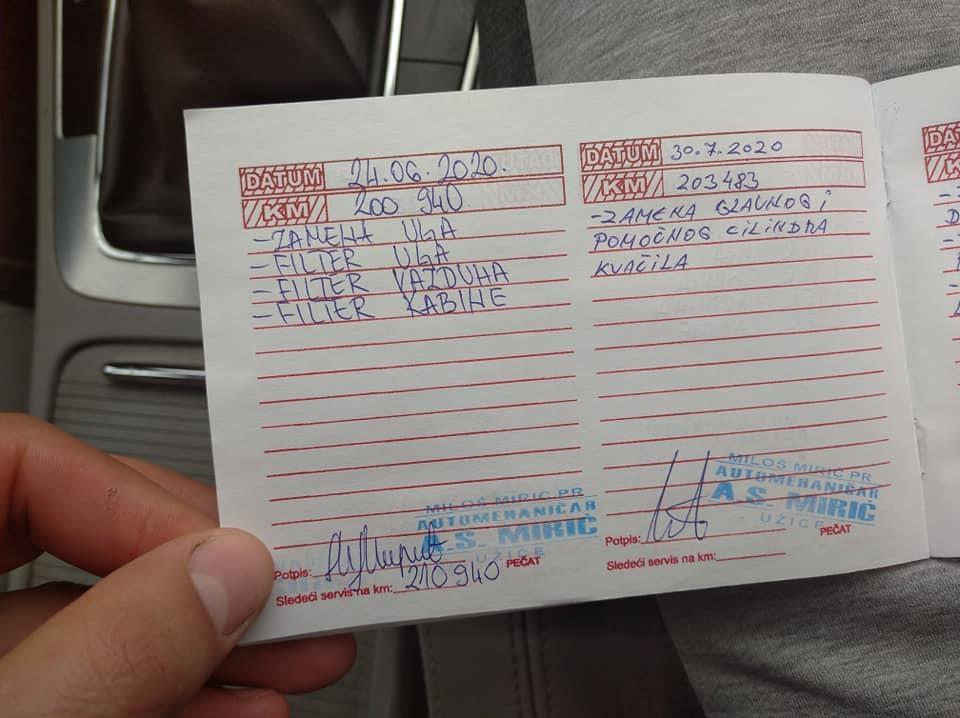 DATUM 24.06.2020.
KM 200 940
-ZAMENA ULJA
-FILTER ULJA
-FILTER VAZDUHA
-FILTER KABINE
MILOŠ MIRIĆ PR
AUTOMEHANIČAR
A.S. MIRIĆ
UŽICE
Potpis: PEČAT
Sledeći servis na km: 210 940
DATUM 30.7.2020
KM 203483
-ZAMENA GLAVNOG i
POMOČNOG CiLiNDRA
KVAČiLA
MILOŠ MIRIĆ PR
AUTOMEHANIČAR
A.S. MIRIĆ
UŽICE
Potpis: PEČAT
Sledeći servis na km: